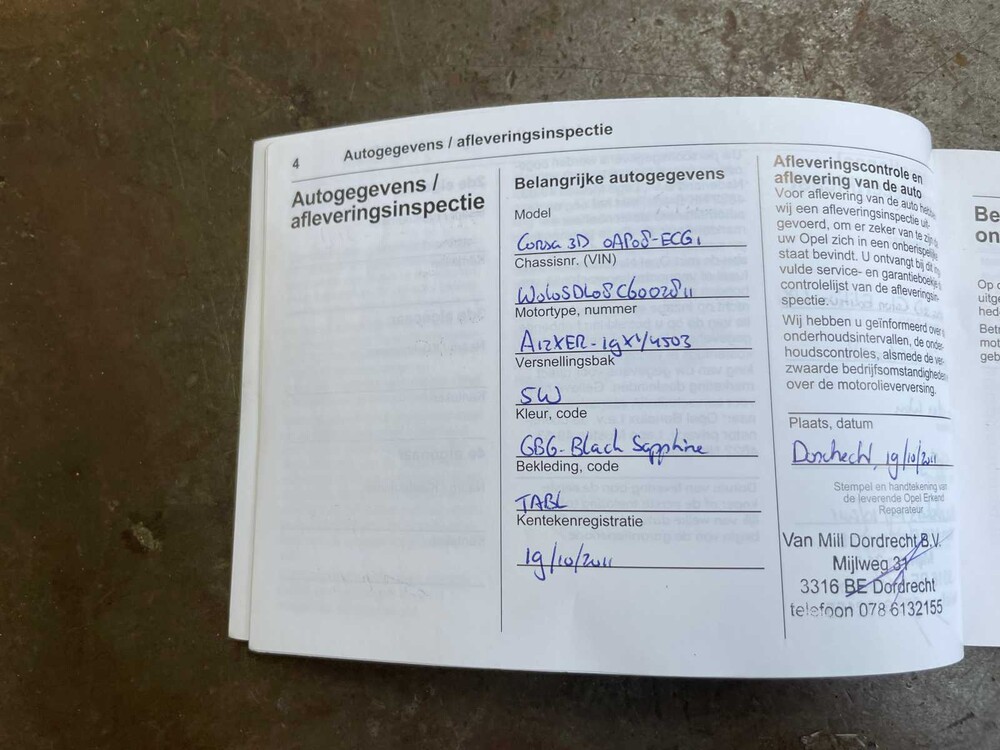 4 Autogegevens / afleveringsinspectie
Autogegevens /
afleveringsinspectie
Belangrijke autogegevens
Model
Corsa 3D 0AP08-ECG1
Chassisnr. (VIN)
W0L0SDL08C6002811
Motortype, nummer
A12XER-19XV4503
Versnellingsbak
5W
Kleur, code
GBG-Black Sapphire
Bekleding, code
TABL
Kentekenregistratie
19/10/2011
Afleveringscontrole en
aflevering van de auto
Voor aflevering van de auto hebben
wij een afleveringsinspectie uit-
gevoerd, om er zeker van te zijn
uw Opel zich in een onberispelijke
staat bevindt. U ontvangt bij dit
vulde service- en garantieboekje
controlelijst van de afleveringsin-
spectie.
Wij hebben u geïnformeerd over
onderhoudsintervallen, de onder-
houdscontroles, alsmede de ver-
zwaarde bedrijfsomstandigheden
over de motorolieverversing.
Plaats, datum
Dordrecht, 19/10/2011
Stempel en handtekening van
de leverende Opel Erkend
Reparateur
Van Mill Dordrecht B.V.
Mijlweg 31
3316 BE Dordrecht
telefoon 078 6132155
Be
on
Op
uitge
hede
Betr
mot
geb